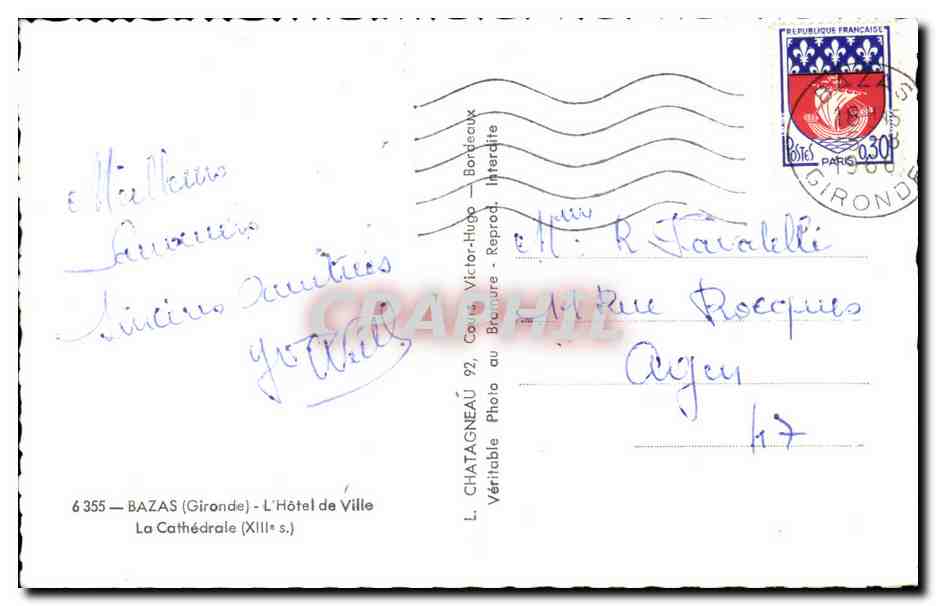 REPUBLIQUE FRANÇAISE
POSTES
PARIS
0,30
BAZAS
GIRONDE
Meilleurs
Souvenirs
Sincères Amitiés
Yvette
R
Rue Rocques
Agen
47
L. CHATAGNEAU 92, Cours Victor-Hugo — Bordeaux
Véritable Photo au Bromure - Reprod. Interdite
CRAPHIL
6 355 — BAZAS (Gironde) - L'Hôtel de Ville
La Cathédrale (XIIIe s.)